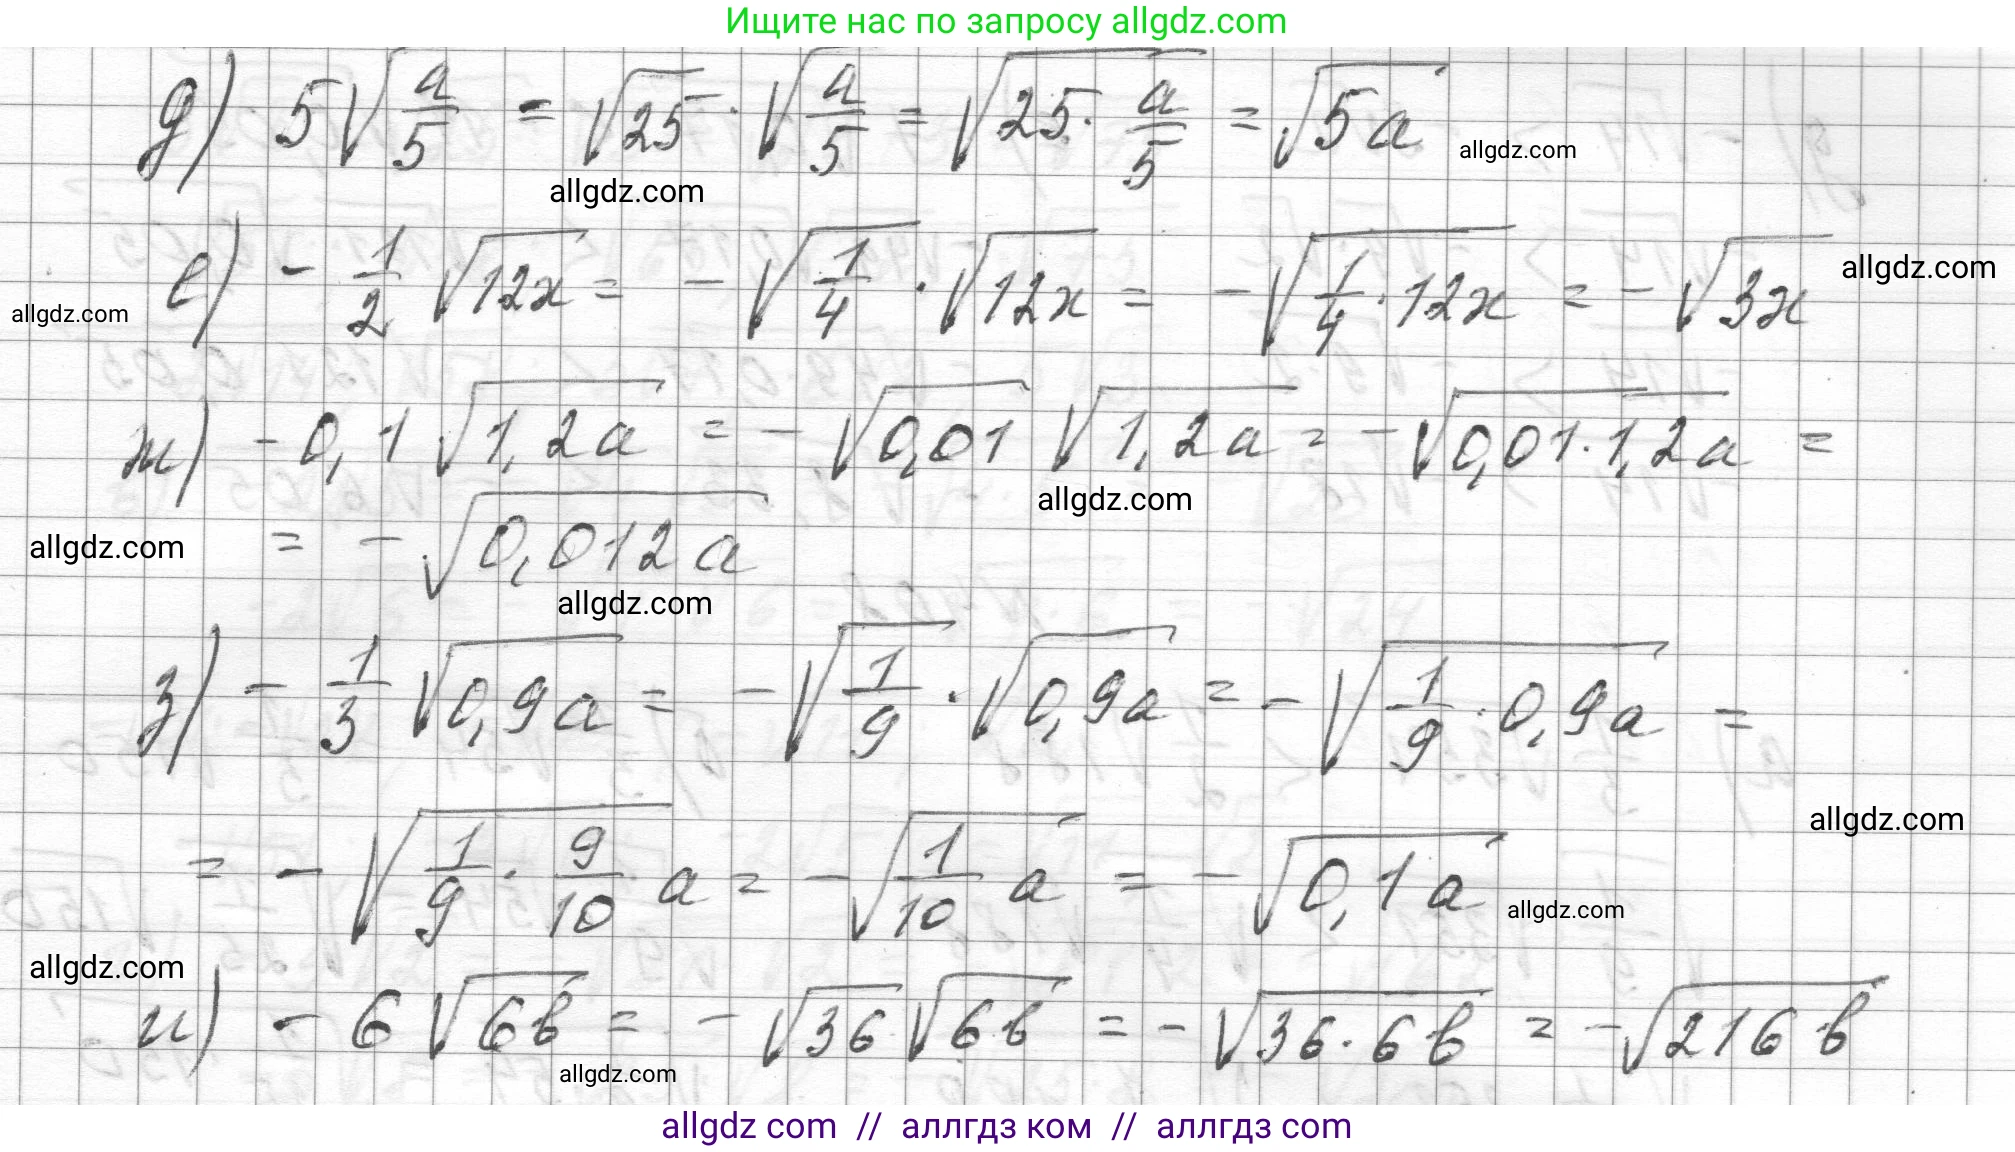 Ищите нас по запросу allgdz.com
д) 5√(a/5) = √25 · √(a/5) = √(25 · a/5) = √(5a)
allgdz.com
allgdz.com
е) - 1/2 √(12x) = - √(1/4) · √(12x) = - √(1/4 · 12x) = - √(3x)
allgdz.com
allgdz.com
ж) - 0,1 √(1,2a) = - √(0,01) √(1,2a) = - √(0,01 · 1,2a) =
allgdz.com
= - √(0,012a)
allgdz.com
allgdz.com
з) - 1/3 √(0,9a) = - √(1/9) · √(0,9a) = - √(1/9 · 0,9a) =
allgdz.com
= - √(1/9 · 9/10 a) = - √(1/10 a) = - √(0,1a)
allgdz.com
allgdz.com
и) - 6 √(6b) = - √36 √(6b) = - √(36 · 6b) = - √(216b)
allgdz.com
allgdz com // аллгдз ком // аллгдз com